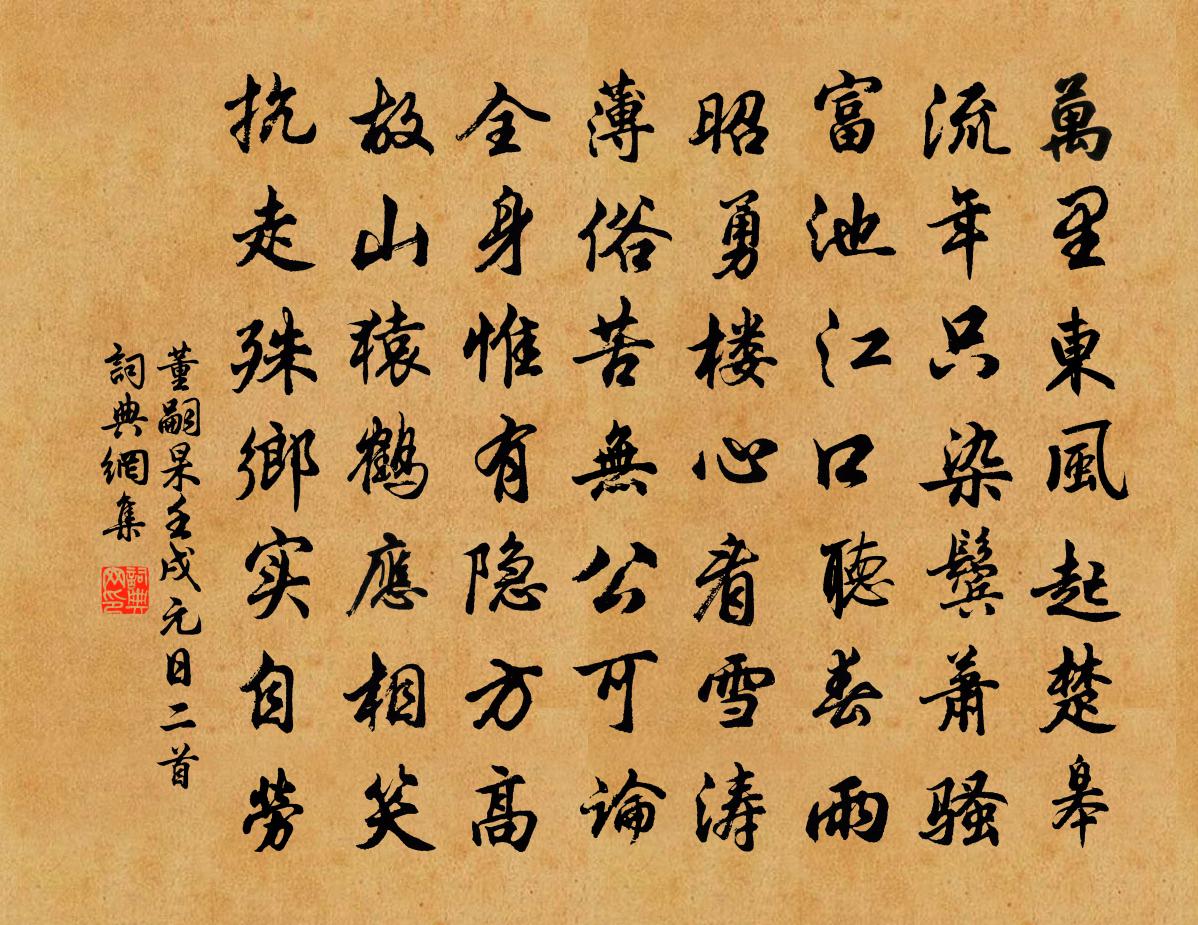 萬里東風起楚皋
流年只染鬢蕭騷
富池江口聽春雨
昭勇楼心看雪涛
薄俗苦無公可論
全身惟有隐方高
故山猿鶴應相笑
抗走殊鄉实自勞
董嗣杲壬戌元日二首
詞典網集
詞典网印